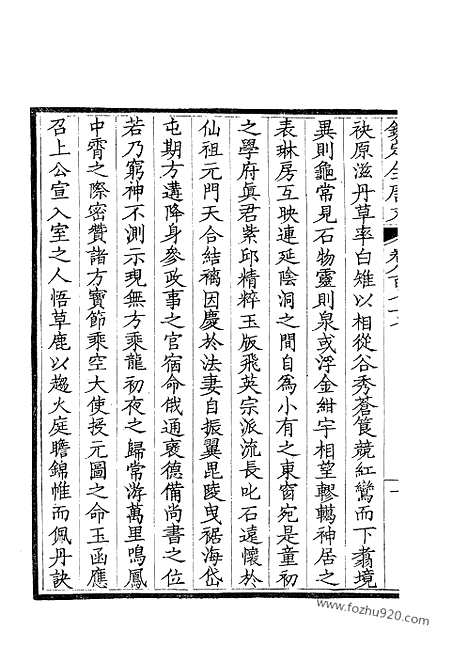 欽定全唐文 卷八百七十
袂原滋丹草率白雉以相從谷秀蒼筤競紅鸞而下翥境
異則龜常見石物靈則泉或浮金紺宇相望轇轕神居之
表琳房互映連延陰洞之間自爲小有之東窗宛是童初
之學府眞君紫邱精粹玉版飛英宗派流長叱石遠懷於
仙祖元門天合結褵因慶於法妻自振翼毘陵曳裾海岱
屯期方遘降身參政事之官宿命俄通褒德備尚書之位
若乃窮神不測示現無方乘龍初夜之歸常游萬里鳴鳳
中霄之際密贊諸方寶節乘空大使授元圖之命玉函應
召上公宣入室之人悟草鹿以趨火庭瞻錦帷而佩丹訣
www.fozhu920.com